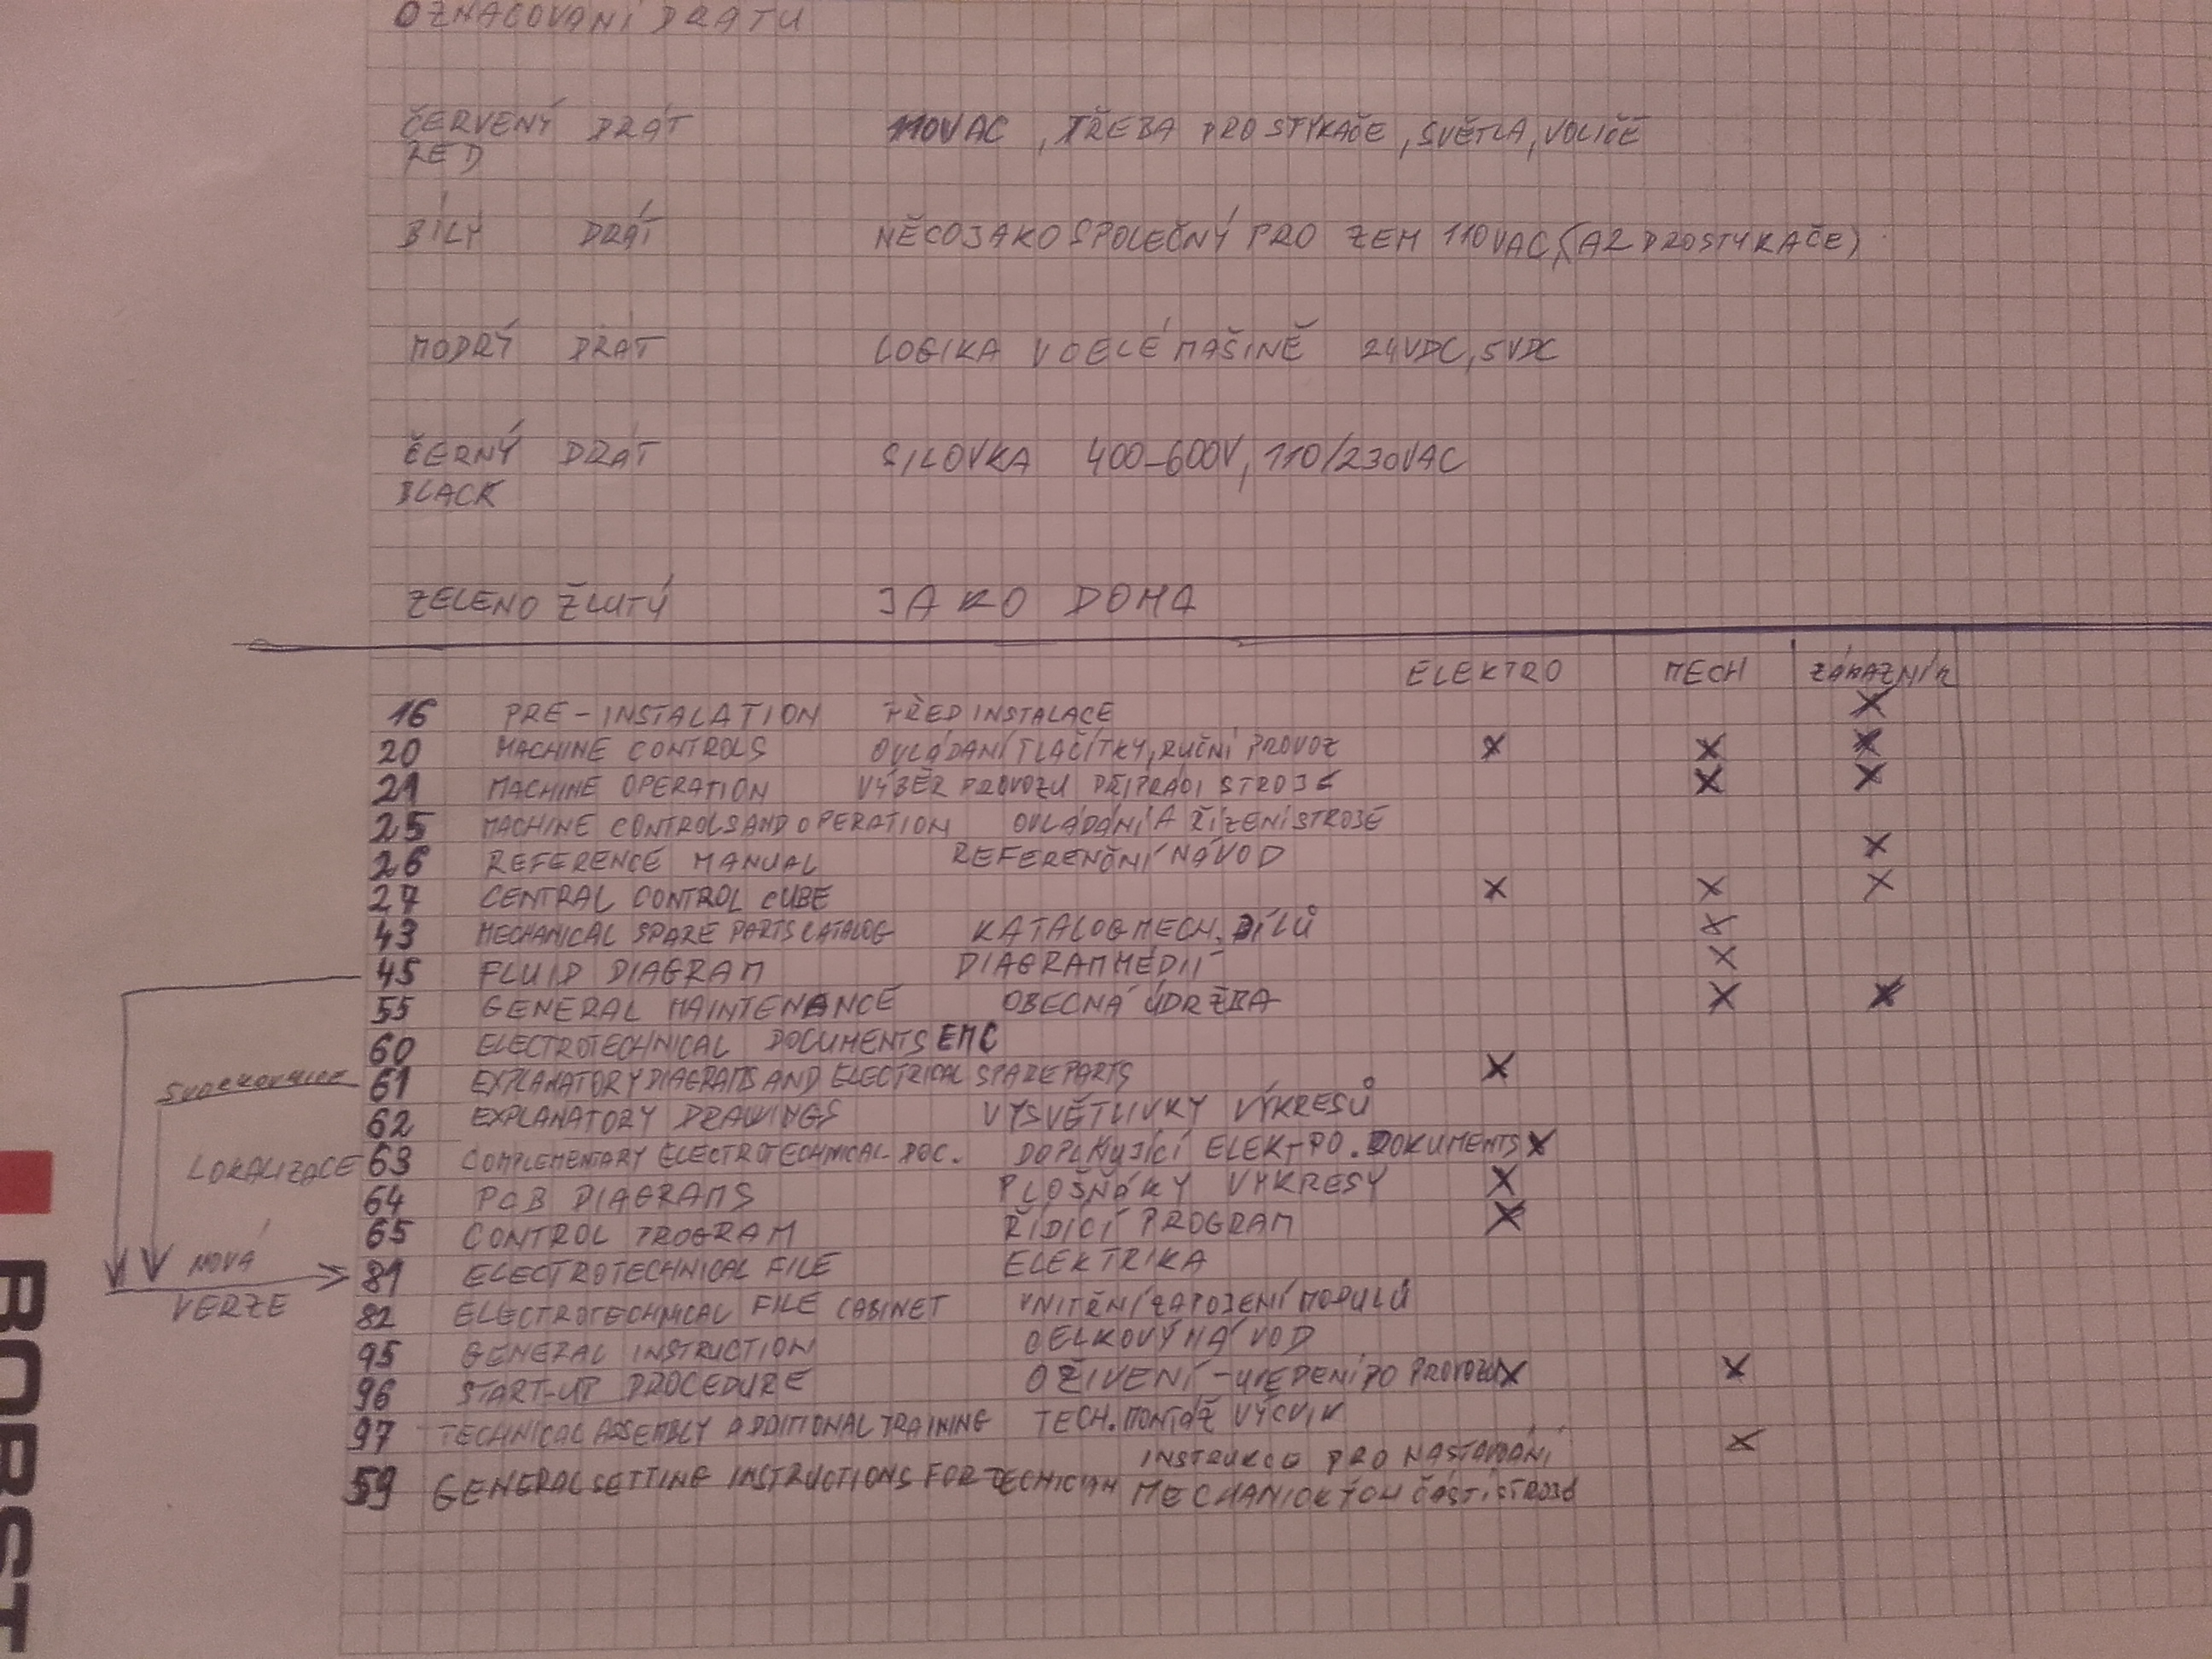 OZNAČOVÁNÍ DRÁTU
ČERVENÝ DRÁT 110VAC, TŘEBA PRO STYKAČE, SVĚTLA, VOLIČE
RED
BÍLÝ DRÁT NĚCO JAKO SPOLEČNÝ PRO ZEM 110VAC, (A2 PRO STYKAČE)
MODRÝ DRÁT LOGIKA V CELÉ MAŠINĚ 24VDC, 5VDC
ČERNÝ DRÁT SILOVKA 400-600V, 110/230VAC
BLACK
ZELENO ŽLUTÝ JAKO DOMA
ELEKTRO MECH ZÁKAZNÍK
16 PRE-INSTALATION PŘED INSTALACE X
20 MACHINE CONTROLS OVLÁDANÍ TLAČÍTKY, RUČNÍ PROVOZ X X X
21 MACHINE OPERATION VÝBĚR PROVOZU PŘI PRÁCI STROJE X X
25 MACHINE CONTROLS AND OPERATION OVLÁDÁNÍ A ŘÍZENÍ STROJE
26 REFERENCE MANUAL REFERENČNÍ NÁVOD X
27 CENTRAL CONTROL CUBE X X X
43 MECHANICAL SPARE PARTS CATALOG KATALOG MECH. DÍLŮ X
45 FLUID DIAGRAM DIAGRAM MÉDIÍ X
55 GENERAL MAINTENANCE OBECNÁ ÚDRŽBA X X
60 ELECTROTECHNICAL DOCUMENTS EMC
SVORKOVNICE 61 EXPLANATORY DIAGRAMS AND ELECTRICAL SPARE PARTS X
62 EXPLANATORY DRAWINGS VYSVĚTLIVKY VÝKRESŮ
LOKALIZACE 63 COMPLEMENTARY ELECTROTECHNICAL DOC. DOPLŇUJÍCÍ ELEKTRO. DOKUMENTS X
64 PCB DIAGRAMS PLOŠŇÁKY VÝKRESY X
65 CONTROL PROGRAM ŘÍDÍCÍ PROGRAM X
NOVÁ 81 ELECTROTECHNICAL FILE ELEKTRIKA
VERZE
82 ELECTROTECHNICAL FILE CABINET VNITŘNÍ ZAPOJENÍ MODULŮ
95 GENERAL INSTRUCTION CELKOVÝ NÁVOD
96 START-UP PROCEDURE OŽIVENÍ - UVEDENÍ DO PROVOZU X X
97 TECHNICAL ASSEMBLY ADDITIONAL TRAINING TECH. MONTÁŽ VÝCVIK
59 GENERAL SETTING INSTRUCTIONS FOR TECHNICIAN INSTRUKCE PRO NASTAVOVÁNÍ X
MECHANICKÝCH ČÁSTÍ STROJE
BOBST